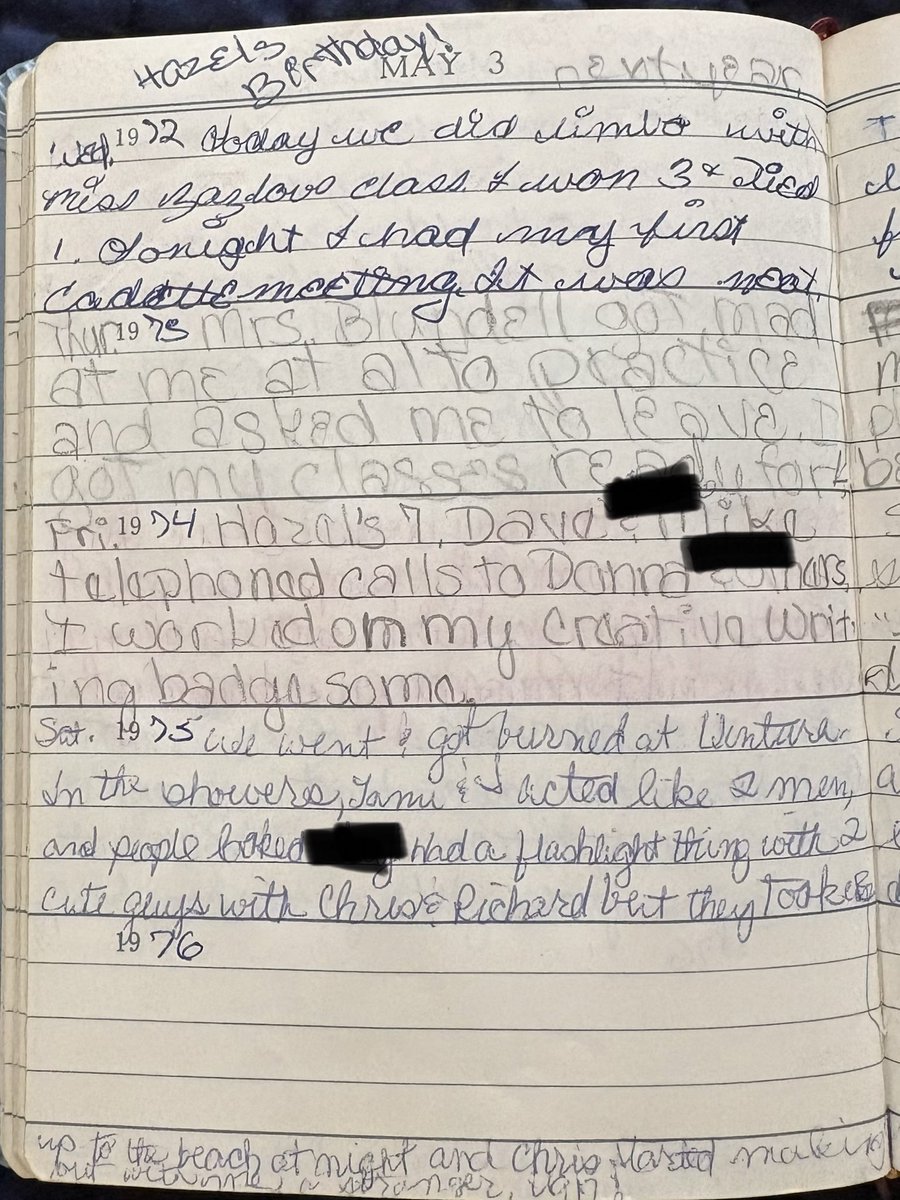 Hazel's
Birthday!
MAY 3
next year
Wed. 1972 Today we did limbo with
miss class I won 3 & died
1. Tonight I had my first
Cadette meeting. It was neat.
Thur. 1973 Mrs. Blundell got mad
at me at alto practice
and asked me to leave. I
got my classes ready for
Fri. 1974 Hazel's 7. Dave & Mike
telephoned calls to Donna &
I worked on my creative writ-
ing badge some.
Sat. 1975 We went & got burned at Ventura.
In the showers, Tami & I acted like 2 men,
and people looked Had a flashlight thing with 2
cute guys with Chris & Richard but they Took
1976
up to the beach at night and Chris started making
out with me, a stranger,